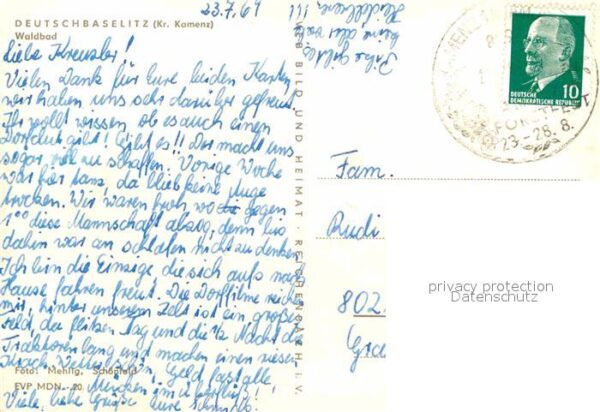 DEUTSCHBASELITZ (Kr. Kamenz)
Waldbad
23.7.69
Liebe Kreuzler!
Vielen Dank für Eure beiden Karten
wir haben uns sehr darüber gefreut.
Ihr wollt wissen ob es auch einen
Dorfclub gibt! Gibt es!! Der macht uns
sogar viel zu schaffen. Vorige Woche
war hier Tanz, da blieb keine Auge
trocken. Wir waren froh, wo die gegen
1°° diese Mannschaft abzog, denn bis
dahin war an schlafen nicht zu denken
Ich bin die Einzige die sich aufs nach
Hause fahren freut. Die Dorffilme
mir, hinter unserem Zelt ist ein großes
Feld, da flitzen Tag und die ½ Nacht die
Traktoren lang und machen einen riesen
Krach. Wetter schön, Geld fast alle,
Mücken
Viele, liebe Grüße Eure
Foto: Mehlig, Schönfeld
EVP MDN -.20
VEB BILD UND HEIMAT · REICHENBACH I. V.
DEUTSCHE
DEMOKRATISCHE REPUBLIK
10
KAMENZ
FORSTFEST
23.-28.8.
Fam.
Rudi
802
privacy protection
Datenschutz